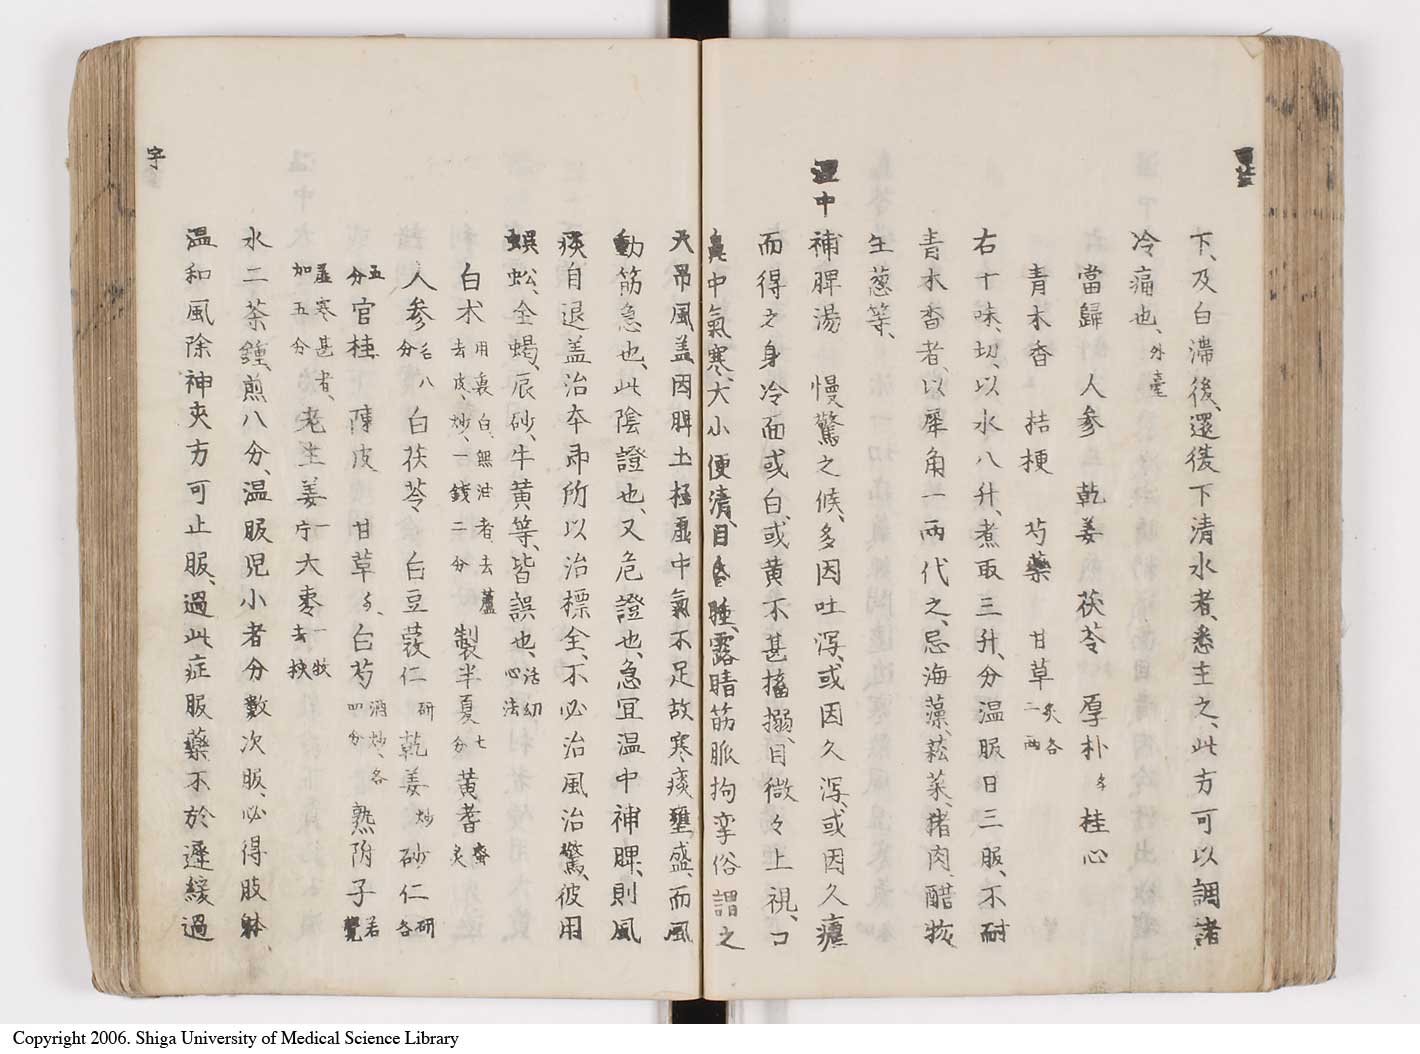 下、及白滞後、還復下清水者、悉主之、此方可以調諸
冷痛也、外臺
當歸 人参 乾姜 茯苓 厚朴 桂心
青木香 桔梗 芍藥 甘草炙各二兩
右十味、切、以水八升、煮取三升、分温服日三服、不耐
青木香者、以犀角一兩代之、忌海藻、菘菜、猪肉、醋物
生葱等、
温中補脾湯 慢驚之候、多因吐瀉、或因久瀉、或因久瘧
而得之身冷面或白、或黄不甚搐搦、目微々上視、口
鼻中氣寒、大小便清、目睡、露睛筋脈拘挛俗謂之
天吊風、盖因脾土極虚中氣不足故寒痰壅盛、而風
動筋急也、此陰證也、又危證也、急宜温中補脾、則風
痰自退盖治本即所以治標全、不必治風治驚、彼用
蜈蚣、全蝎、辰砂、牛黄等、皆誤也、活幼心法
白术用裏白無油者、去蘆去皮、炒、一錢二分 製半夏七分 黄耆蜜炙
人参八分 白茯苓 白豆蔲仁研 乾姜炒 砂仁研各
五分 官桂 陳皮 甘草 白芍酒炒、各四分 熟附子若覺
虚寒甚者、加五分、老生姜一片大枣一枚去核
水二茶鍾、煎八分、温服児小者分數次服、必得肢躰
温和風除神爽方可止服、過此症服藥不於遲緩過
字